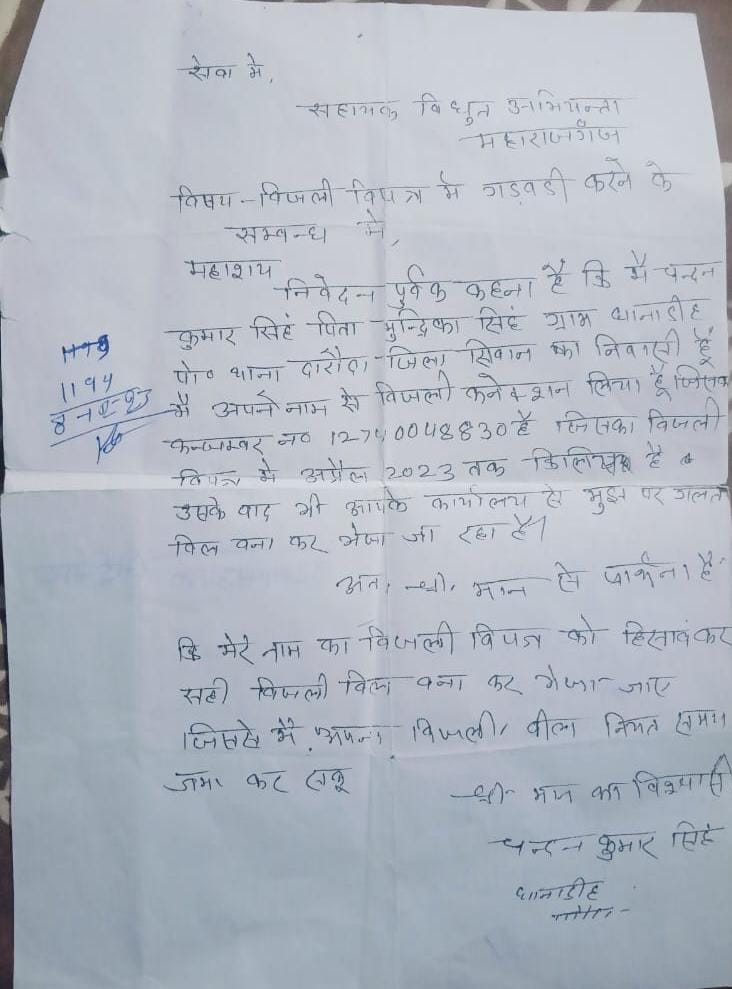 सेवा मे,
सहायक विधुत अभियन्ता
महाराजगँज
विषय - बिजली विपत्र मे गड़वडी करने के
सम्बन्ध मे,
महाशय
निवेदन पुर्वक कहना है कि मै चन्दन
कुमार सिहं पिता मुन्द्रिका सिहं ग्राम धानाडीह
पो० थाना दारौदा जिला सिवान का निवासी हूँ
मै अपने नाम से विजली कनेक्शन लिया हूँ जिसका
1194
8-12-23
न० 12740048830 है जिसका विजली
विपत्र मे अप्रैल 2023 तक है
उसके वाद भी आपके कार्यालय से मुझ पर गलत
विल वना कर भेजा जा रहा है।
अतः श्री मान से प्रार्थना है
कि मेरे नाम का विजली विपत्र को हिसावं कर
सही विजली विल वना कर भेजा जाए
जिससे मै अपना विजली वील नियत समय
जमा कर सकू
श्री मान का विश्वासी
चन्दन कुमार सिहं
धानाडीह